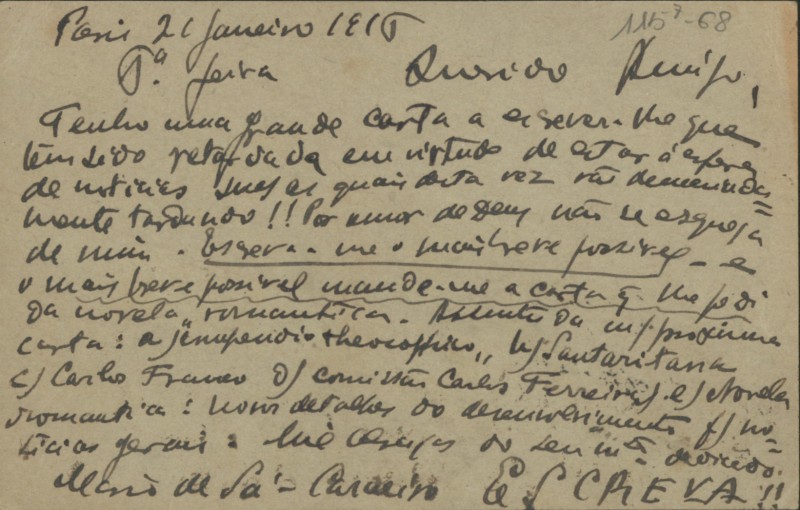 115⁷-68
Paris 21 Janeiro 1915
5ª feira Querido Amigo,
Tenho uma grande carta a escrever-lhe que
tem sido retardada em virtude de estar á espera
de noticias suas as quais desta vez vão demasiada=
mente tardando!! Por amor de Deus não se esqueça
de mim. Escreva-me o mais breve possivel - e
o mais breve possivel mande-me a carta q. lhe pedi
da novela romantica. Assunto da m/ proxima
carta: a) theosophico,, b) Santa-Rita
c) Carlos Franco d) comissão Carlos Ferreira) e) Novela
romantica: novos detalhes do desenvolvimento f) no=
ticias gerais. Mil abraços do seu mtº amigo.
Mario de Sá-Carneiro ESCREVA!!